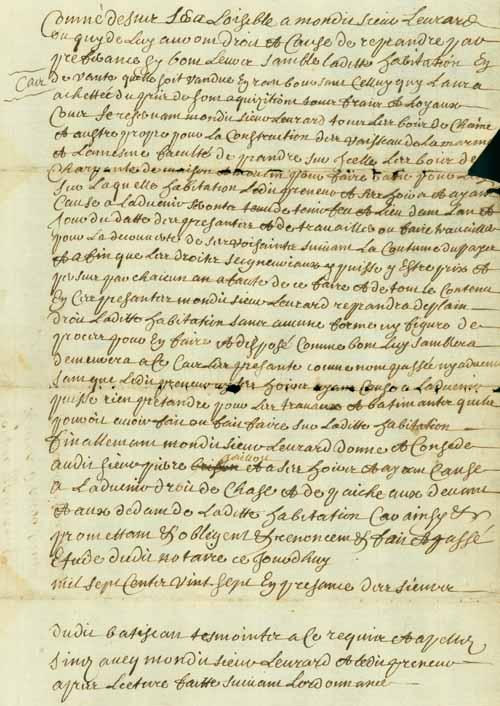 Comme dessus sera Loisible a mondit sieur Levrard
ou quy de Luy auront droit & Cause de reprendre par
preferance Ey bon Leur samble laditte habitation Ey
Cas de vante quelle soit vandue Ey ran boursant Celluy quy Laura
achettée du prix de son aquizition tous fraix & Loyaux
Cous Se reservant mondit sieur Levrard tous Les bois de Chaine
& autre propre pour la Construction des vaisseau de la marine
& La mesme faculté de prandre sur Icelle Les bois de
Charpante de maison pour faire batir pour Luy
sur Laquelle habitation Ledit preneur & ses hoirs & ayant
Cause a Laduenir tenu de tenir feu & Lieu dem Lan &
Jour du datte des presantes & de travailler ou faire travailler
pour La decouverte de ses voisains suivant La Coutume du pays
& afin que Les droits seigneuriaux y puisse y Estre pris &
persus par chacun an a faute de ce faire & de tout le Contenu
Ey Ces presantes mondit sieur Levrard reprandra de plain
droit Laditte habitation sans aucune forme ny figure de
proces pour Ey faire & disposé Comme bon Luy samblera
demeurera a Ce Cas Les presante comme non passée ny aduenue
sans que Ledit preneur ses hoirs ayant Cause a Laduenir
puisse rien pretandre pour Les travaux & batimants quil
pouroit avoir fait ou fait faire sur Laditte habitation
finallemant mondit sieur Levrard donne & Concede
audit sieur pierre & a ses hoirs & ayant Cause
a Laduenir droit de Chase & de paiche aux devant
& aux dedans de Laditte habitation Car ainsy &c
promettant &c obligent &c renoncent &c fait & passé
Etude dudit notaire ce Jourdhuy
mil sept Cents vint sept Ey presance des sieurs
dudit batiscan tesmoints a Ce requis & apellez
signé avey mondit sieur Levrard & Ledit preneur
apres Lecture faitte suivant Lordonnance